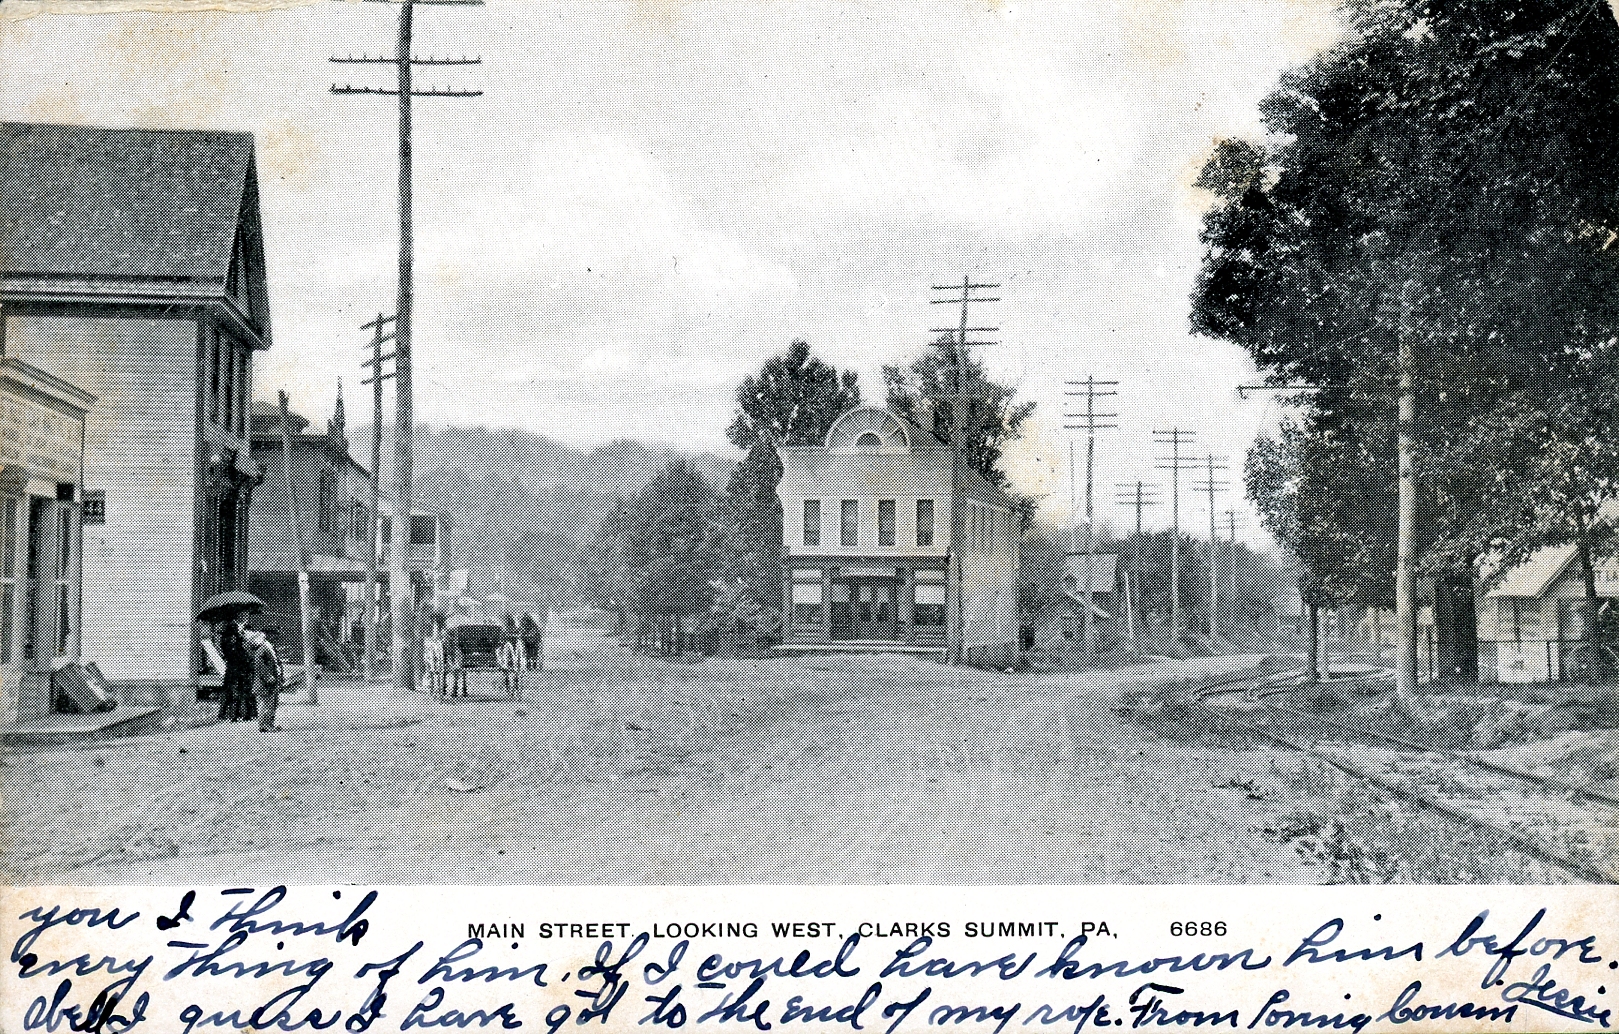 44
you I think
MAIN STREET, LOOKING WEST, CLARKS SUMMIT, PA, 6686
every thing of him. If I could have known him before.
Well I guess I have got to the end of my rope. From loving Cousin Jessie